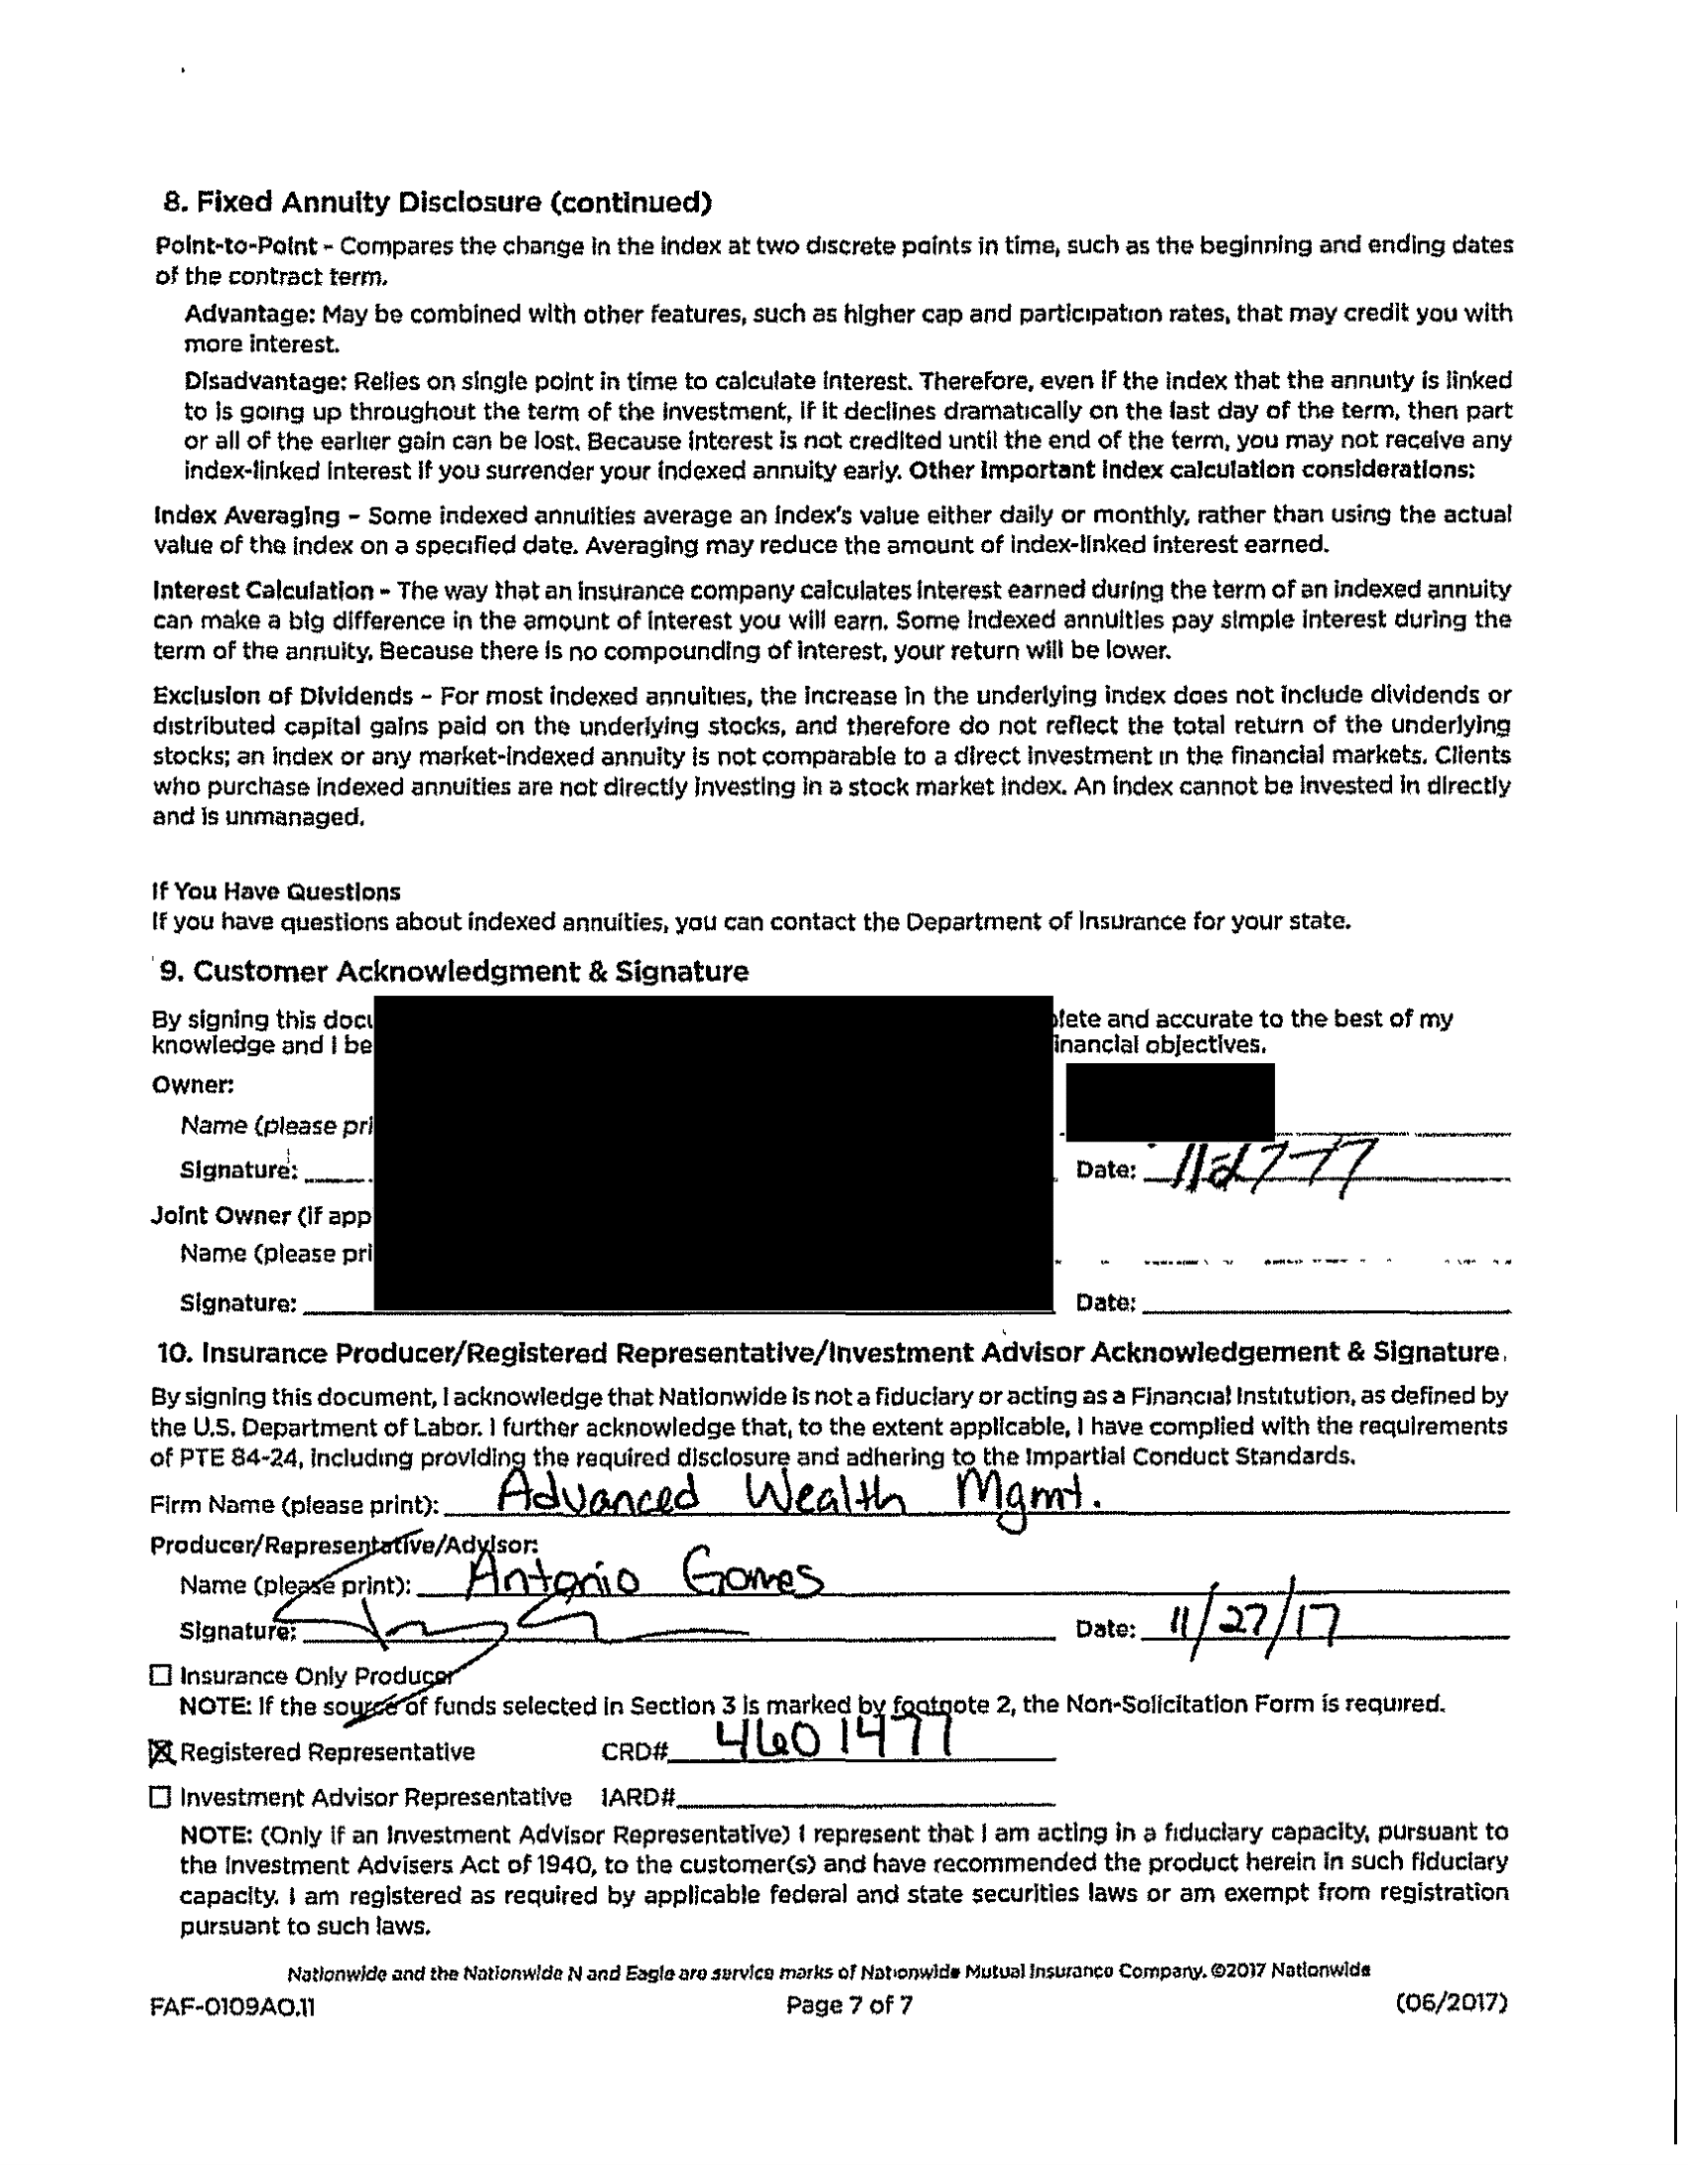 8. Fixed Annuity Disclosure (continued)
Point-to-Point - Compares the change in the index at two discrete points in time, such as the beginning and ending dates
of the contract term.
Advantage: May be combined with other features, such as higher cap and participation rates, that may credit you with
more interest.
Disadvantage: Relies on single point in time to calculate interest. Therefore, even if the index that the annuity is linked
to is going up throughout the term of the investment, if it declines dramatically on the last day of the term, then part
or all of the earlier gain can be lost. Because interest is not credited until the end of the term, you may not receive any
index-linked interest if you surrender your indexed annuity early. Other important index calculation considerations:
Index Averaging – Some indexed annuities average an index's value either daily or monthly, rather than using the actual
value of the index on a specified date. Averaging may reduce the amount of index-linked interest earned.
Interest Calculation - The way that an insurance company calculates interest earned during the term of an indexed annuity
can make a big difference in the amount of interest you will earn. Some indexed annuities pay simple interest during the
term of the annuity. Because there is no compounding of interest, your return will be lower.
Exclusion of Dividends – For most indexed annuities, the increase in the underlying index does not include dividends or
distributed capital gains paid on the underlying stocks, and therefore do not reflect the total return of the underlying
stocks; an index or any market-indexed annuity is not comparable to a direct investment in the financial markets. Clients
who purchase indexed annuities are not directly investing in a stock market index. An index cannot be invested in directly
and is unmanaged.
If You Have Questions
If you have questions about indexed annuities, you can contact the Department of Insurance for your state.
9. Customer Acknowledgment & Signature
By signing this docu lete and accurate to the best of my
knowledge and I be inancial objectives.
Owner:
Name (please pri
Signature: Date:
Joint Owner (if app
Name (please pri
Signature: Date:
10. Insurance Producer/Registered Representative/Investment Advisor Acknowledgement & Signature
By signing this document, I acknowledge that Nationwide is not a fiduciary or acting as a Financial Institution, as defined by
the U.S. Department of Labor. I further acknowledge that, to the extent applicable, I have complied with the requirements
of PTE 84-24, including providing the required disclosure and adhering to the Impartial Conduct Standards.
Firm Name (please print): Advanced Wealth Mgmt.
Producer/Representative/Advisor:
Name (please print): Antonio Gomes
Signature: Date: 11/27/17
Insurance Only Producer
NOTE: If the source of funds selected in Section 3 is marked by footnote 2, the Non-Solicitation Form is required.
Registered Representative CRD# 4601477
Investment Advisor Representative IARD#
NOTE: (Only if an Investment Advisor Representative) I represent that I am acting in a fiduciary capacity, pursuant to
the Investment Advisers Act of 1940, to the customer(s) and have recommended the product herein in such fiduciary
capacity. I am registered as required by applicable federal and state securities laws or am exempt from registration
pursuant to such laws.
Nationwide and the Nationwide N and Eagle are service marks of Nationwide Mutual Insurance Company. ©2017 Nationwide
FAF-0109AO.11 Page 7 of 7 (06/2017)